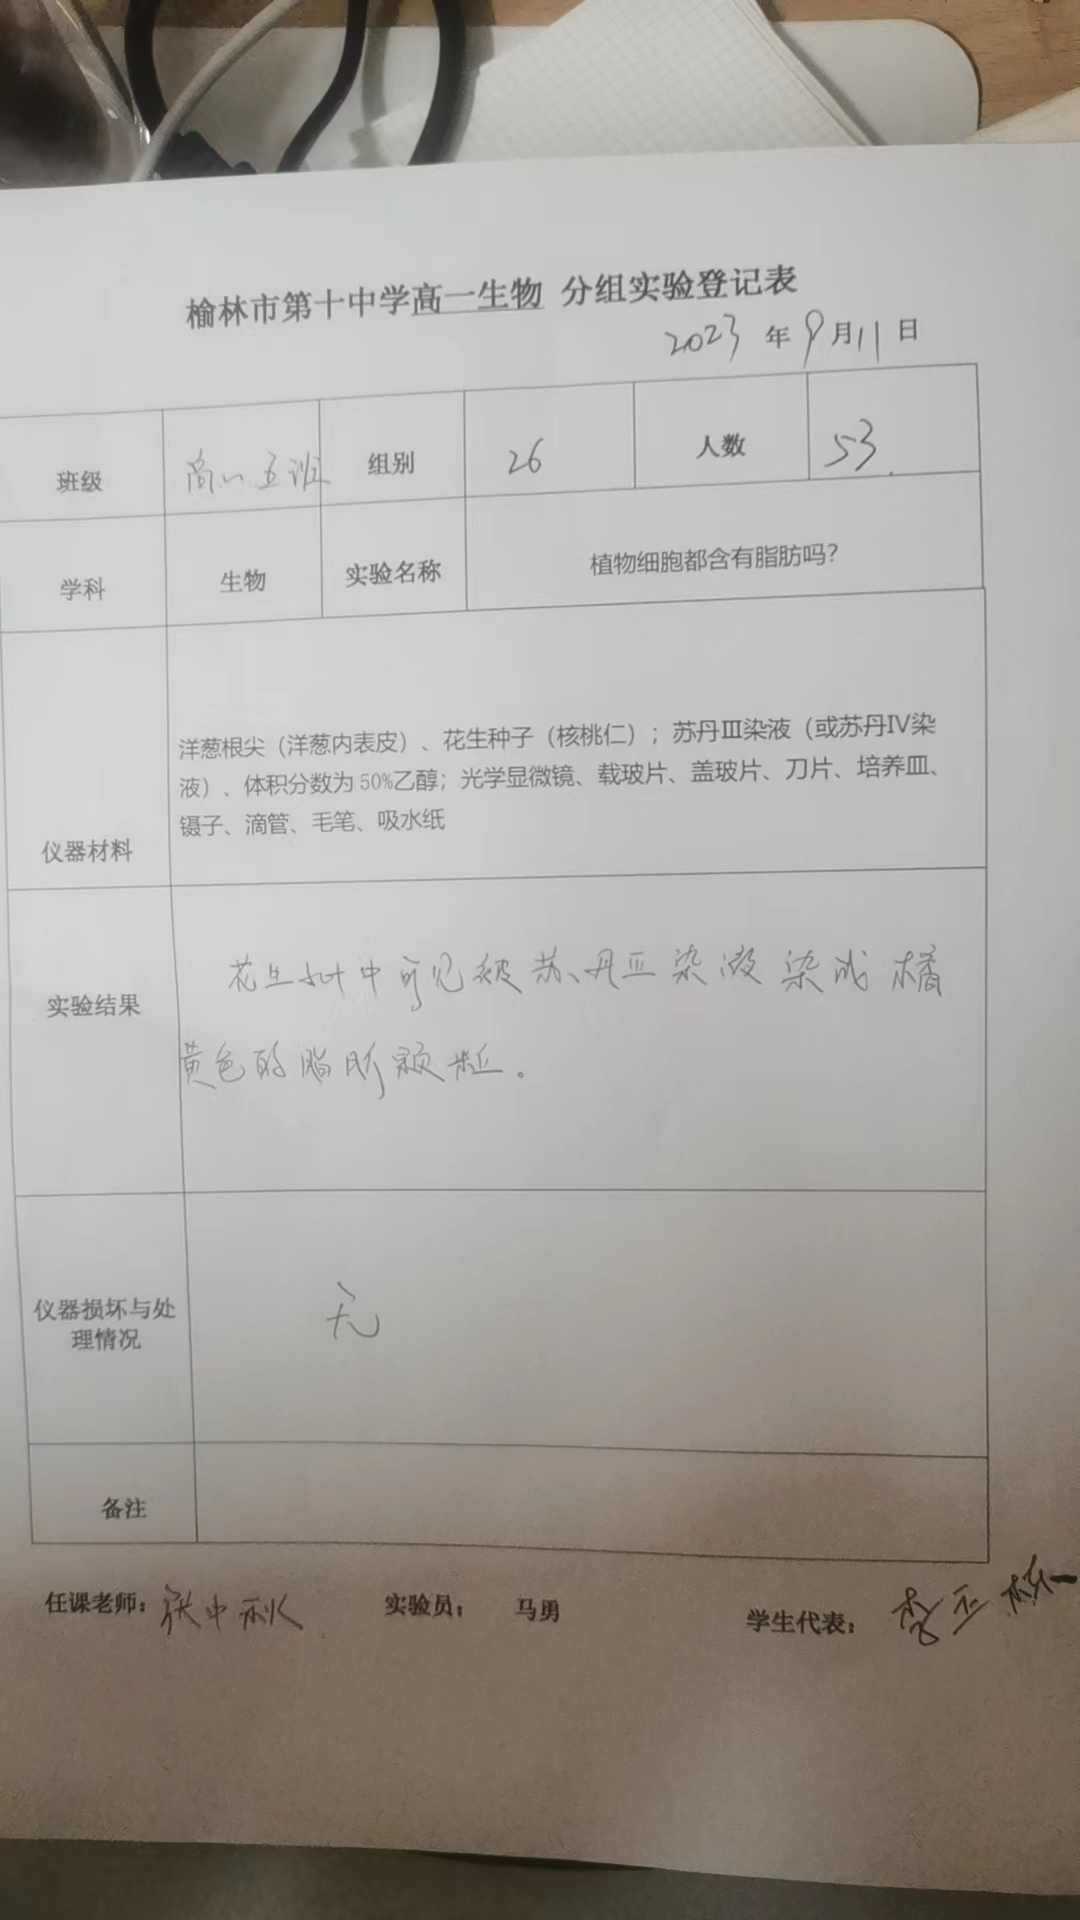 榆林市第十中学高一生物 分组实验登记表
2023 年 9 月 11 日
班级 高一五班 组别 26 人数 53.
学科 生物 实验名称 植物细胞都含有脂肪吗?
仪器材料
洋葱根尖（洋葱内表皮）、花生种子（核桃仁）；苏丹Ⅲ染液（或苏丹Ⅳ染
液）、体积分数为 50%乙醇；光学显微镜、载玻片、盖玻片、刀片、培养皿、
镊子、滴管、毛笔、吸水纸
实验结果
花生 中可见被苏丹 染液染成橘
黄色的脂肪颗粒。
仪器损坏与处
理情况
无
备注
任课老师： 张中秋 实验员： 马勇 学生代表： 李